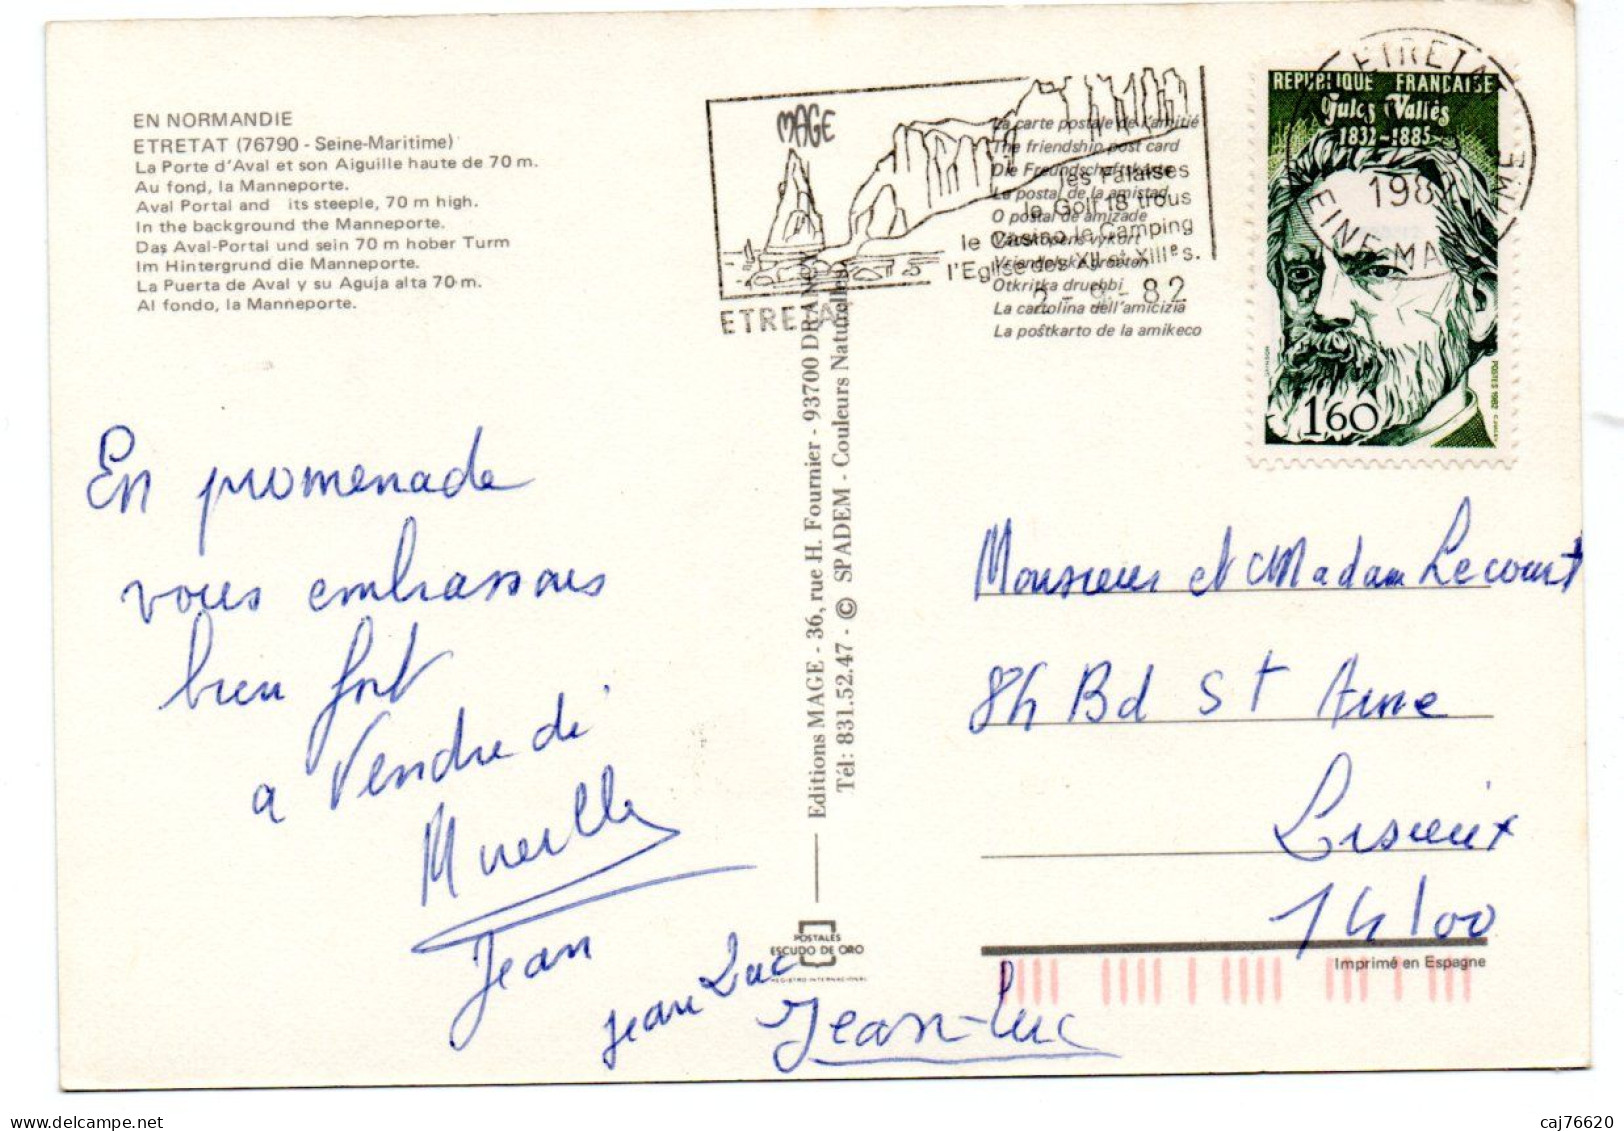 EN NORMANDIE
ETRETAT (76790 - Seine-Maritime)
La Porte d'Aval et son Aiguille haute de 70 m.
Au fond, la Manneporte.
Aval Portal and its steeple, 70 m high.
In the background the Manneporte.
Das Aval-Portal und sein 70 m hober Turm
Im Hintergrund die Manneporte.
La Puerta de Aval y su Aguja alta 70 m.
Al fondo, la Manneporte.
MAGE
La carte postale de l'amitié
The friendship post card
Die Freundschaftskarte
La postal de la amistad
O postal de amizade
Vriendelijke groeten
Otkritka druehbi
La cartolina dell'amicizia
La poŝtkarto de la amikeco
les Falaises
le Golf 18 trous
le Casino le Camping
l'Eglise des XII et XIIIe s.
2 - 9 - 82
ETRETAT
ETRETAT
SEINE-MARITIME
REPUBLIQUE FRANCAISE
Jules Vallès
1832-1885
1,60
POSTES 1982
En promenade
vous embrassons
bien fort
a Vendredi
Jean
Jean Luc
Jean-Luc
Editions MAGE - 36, rue H. Fournier - 93700 DRANCY
Tél: 831.52.47 - © SPADEM - Couleurs Naturelles
POSTALES
ESCUDO DE ORO
REGISTRO INTERNACIONAL
Monsieur et Madam Lecourt
84 Bd St Anne
Lisieux
14100
Imprimé en Espagne
caj76620